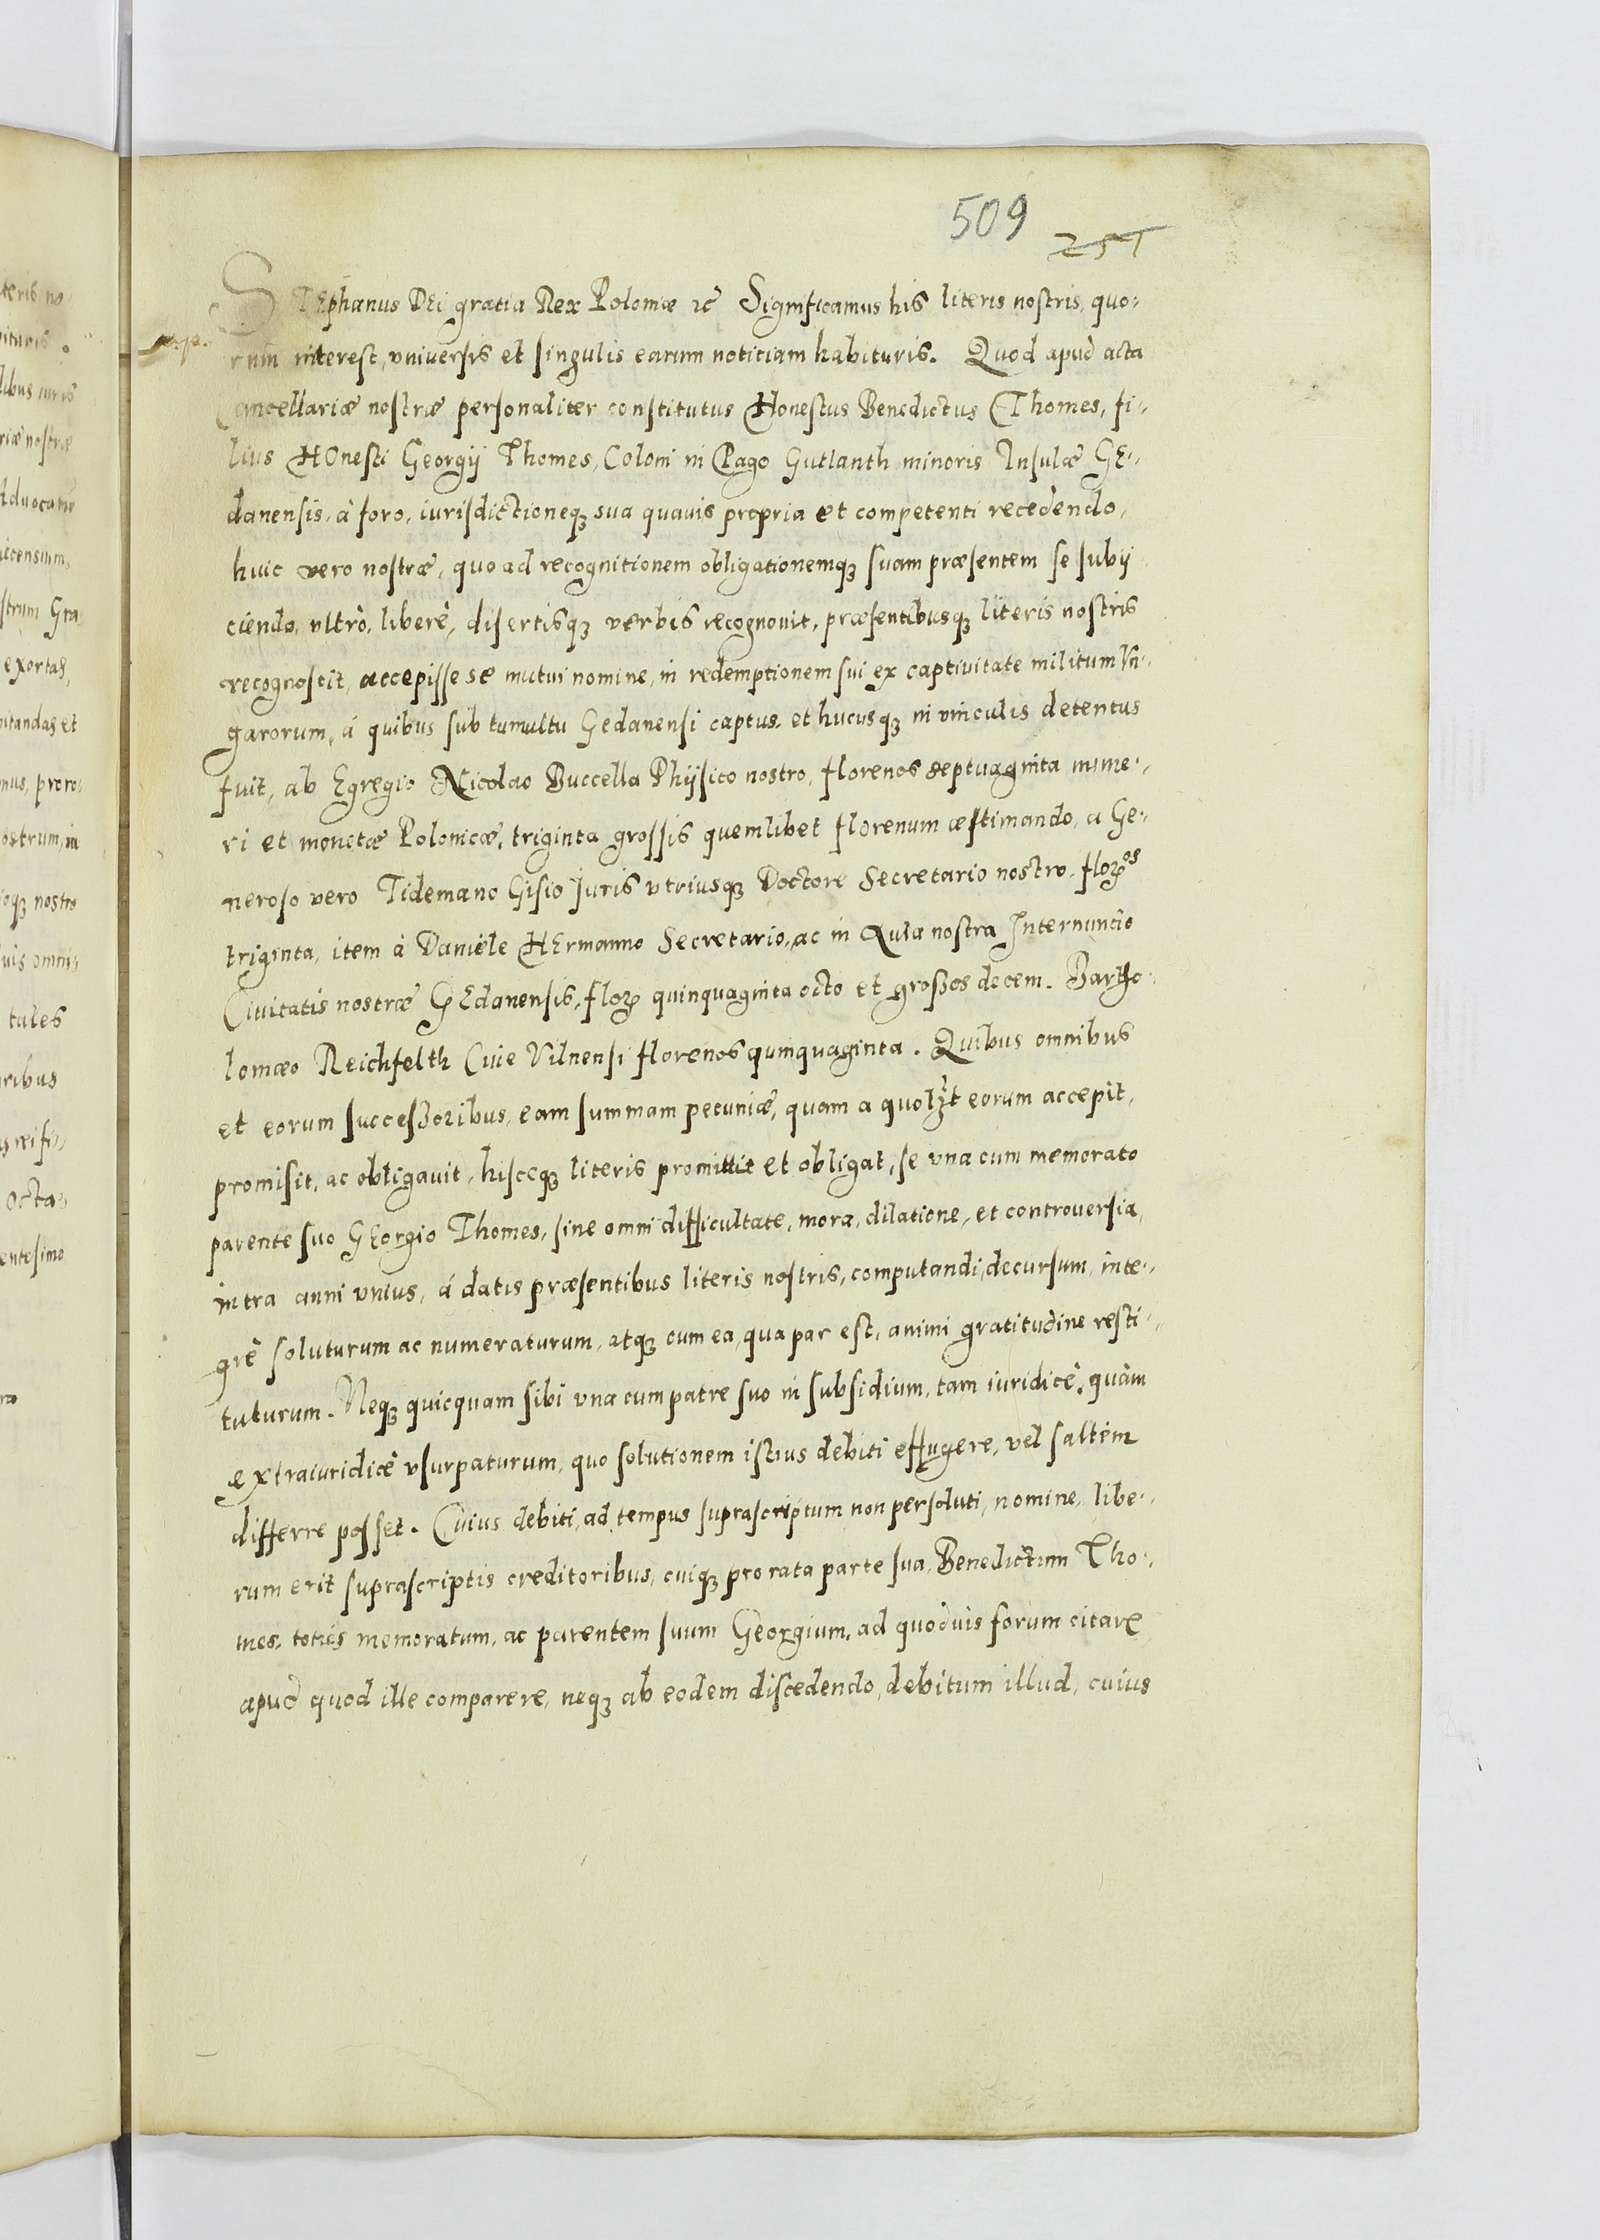 509
251
STEphanus DEi gratia Rex Poloniæ &c Significamus his literis nostris, quo-
rum interest, vniuersis et singulis earum noticiam habituris. Quod apud acta
Cancellariæ nostræ personaliter constitutus Honestus Benedictus Thomes, fi-
lius HOnesti Georgij Thomes, Coloni in Pago Gutlanth minoris Insulæ GE-
danensis, à foro, iurisdictioneqꝫ sua quauis propria et competenti recedendo,
huic vero nostræ, quo ad recognitionem obligationemqꝫ suam præsentem se subij
ciendo, vltrò, liberè, disertisqꝫ verbis recognouit, præsentibusqꝫ literis nostris
recognoscit, accepisse se mutui nomine, in redemptionem sui ex captiuitate militum Vn-
garorum, á quibus sub tumultu Gedanensi captus, et hucusqꝫ in vinculis detentus
fuit, ab Egregio Nicolao Buccella Phijsico nostro, florenos septuaginta nume-
ri et monetæ Polonicæ, triginta grossis quemlibet florenum æstimando, a Ge-
neroso vero Tidemano Gisio Juris vtriusqꝫ Doctore Secretario nostro, florͦˢ
triginta, item à Daniele HErmanno Secretario, ac in Aula nostra Internuncio
Ciuitatis nostræ GEdanensis, flor quinquaginta octo et großos decem. Bartho-
lomæo Reichfelth Ciue Vilnensi florenos quinquaginta. Quibus omnibus
et eorum succeßoribus, eam summam pecuniæ, quam a quolꝫt eorum accepit,
promisit, ac obligauit, hisceqꝫ literis promittit et obligat, se vna cum memorato
parente suo GEorgio Thomes, sine omni difficultate, mora, dilatione, et controuersia,
intra anni vnius, á datis præsentibus literis nostris, computandi, decursum, inte-
grè soluturum ac numeraturum, atqꝫ cum ea, qua par est, animi gratitudine resti-
tuturum. Neqꝫ quicquam sibi vna cum patre suo in subsidium, tam iuridicè, quàm
extraiuridicè vsurpaturum, quo solutionem istius debiti effugere, vel saltem
differre posset. Cuius debiti, ad tempus suprascriptum non persoluti, nomine, libe-
rum erit suprascriptis creditoribus, cuiqꝫ pro rata parte sua, Benedictum Tho-
mes, toties memoratum, ac parentem suum Georgium, ad quoduis forum citare
apud quod ille comparere, neqꝫ ab eodem discedendo, debitum illud, cuius